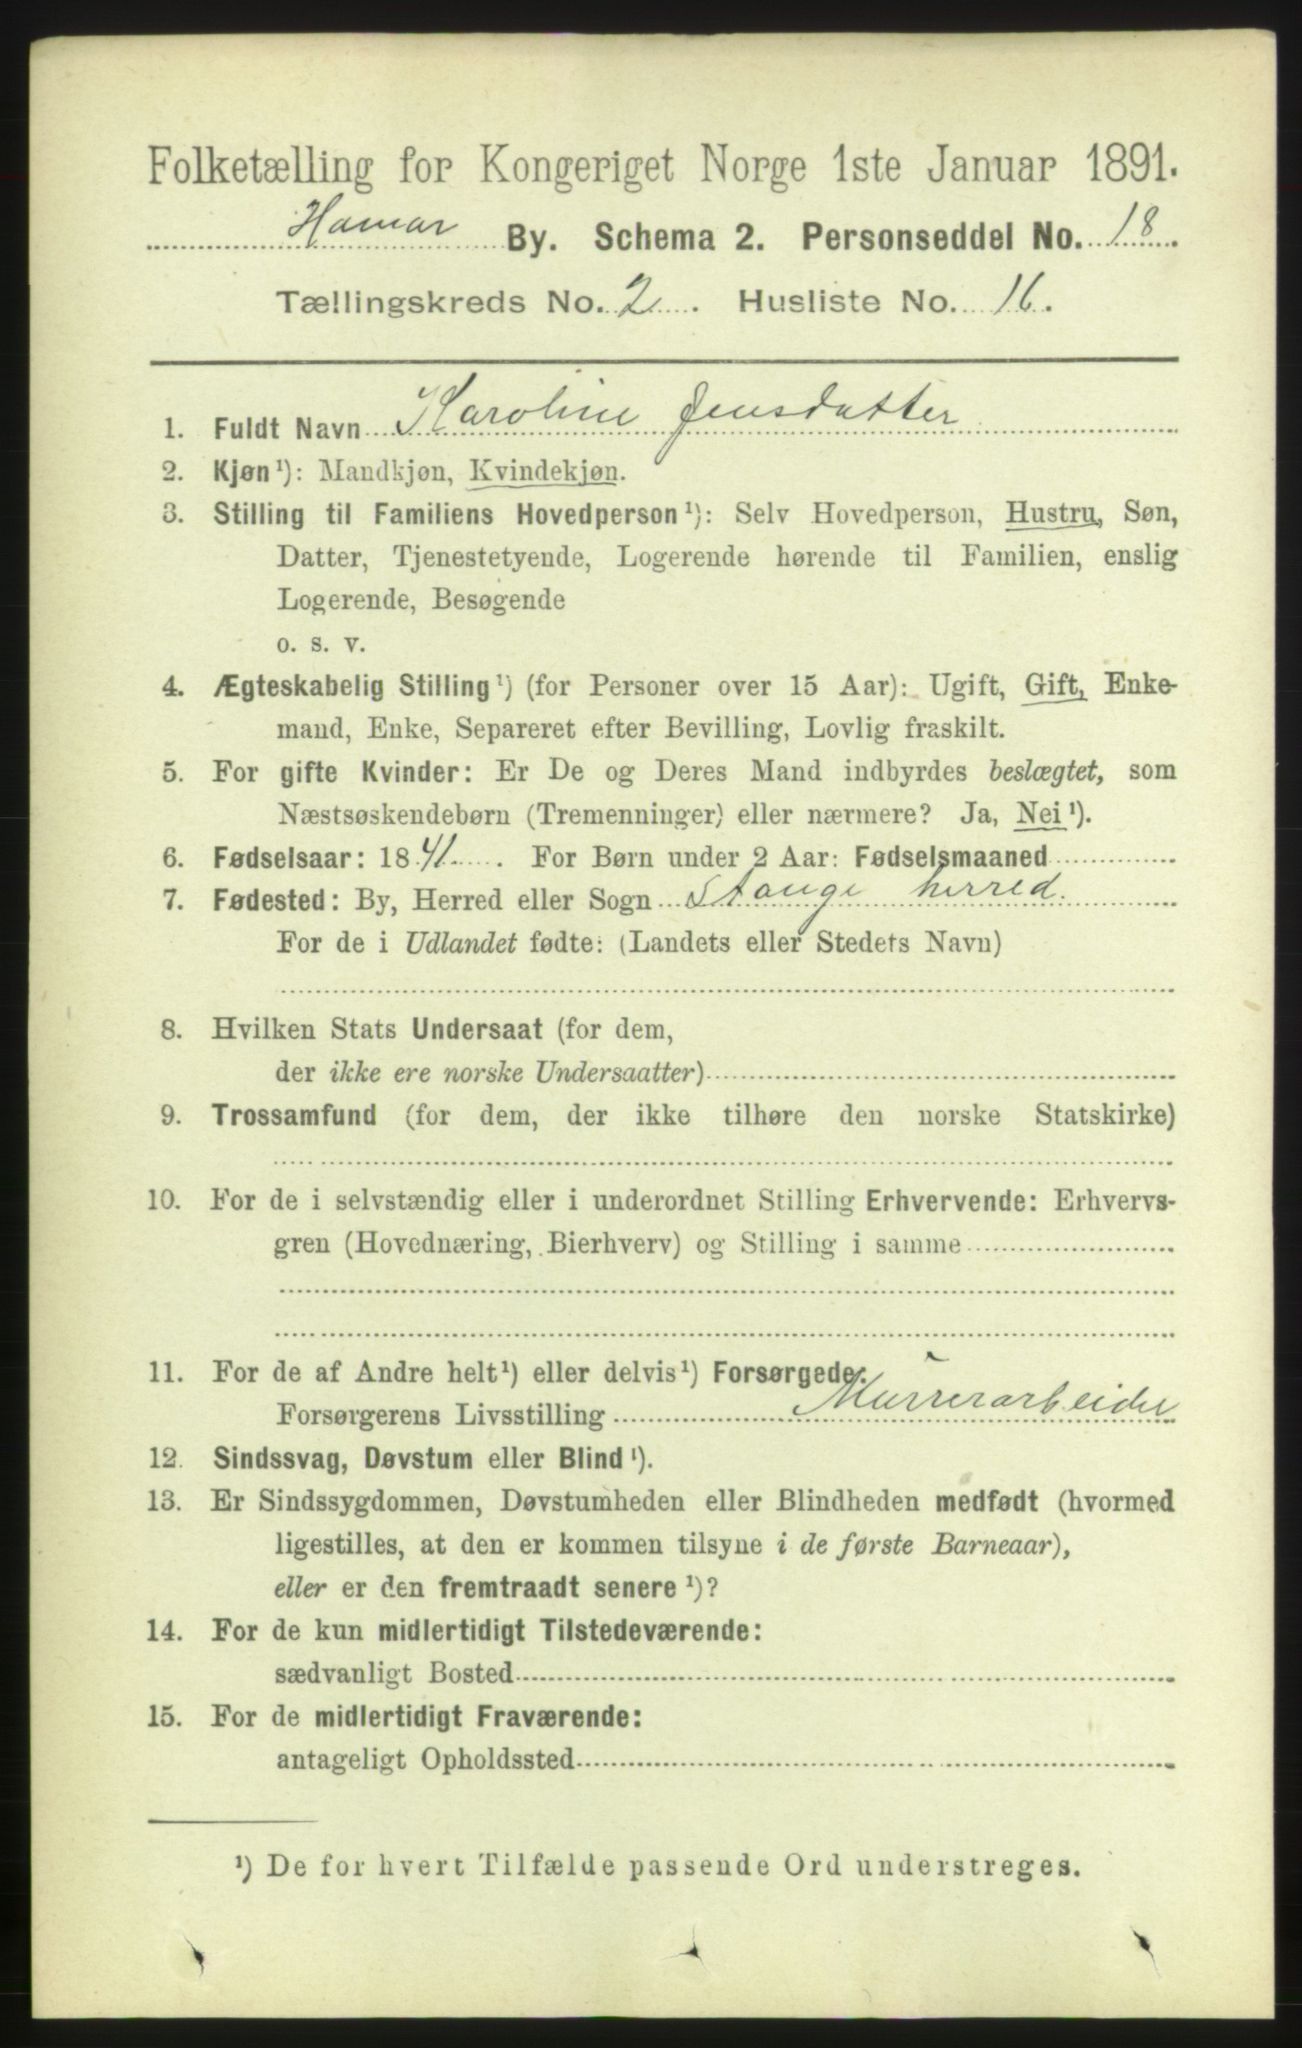 Folketælling for Kongeriget Norge 1ste Januar 1891.
Hamar By. Schema 2. Personseddel No. 18.
Tællingskreds No. 2. Husliste No. 16.
1. Fuldt Navn Karoline Jensdatter
2. Kjøn¹): Mandkjøn, Kvindekjøn.
3. Stilling til Familiens Hovedperson¹): Selv Hovedperson, Hustru, Søn,
Datter, Tjenestetyende, Logerende hørende til Familien, enslig
Logerende, Besøgende
o. s. v.
4. Ægteskabelig Stilling¹) (for Personer over 15 Aar): Ugift, Gift, Enke-
mand, Enke, Separeret efter Bevilling, Lovlig fraskilt.
5. For gifte Kvinder: Er De og Deres Mand indbyrdes beslægtet, som
Næstsøskendebørn (Tremenninger) eller nærmere? Ja, Nei¹).
6. Fødselsaar: 1841. For Børn under 2 Aar: Fødselsmaaned
7. Fødested: By, Herred eller Sogn Stange herred.
For de i Udlandet fødte: (Landets eller Stedets Navn)
8. Hvilken Stats Undersaat (for dem,
der ikke ere norske Undersaatter)
9. Trossamfund (for dem, der ikke tilhøre den norske Statskirke)
10. For de i selvstændig eller i underordnet Stilling Erhvervende: Erhvervs-
gren (Hovednæring, Bierhverv) og Stilling i samme
11. For de af Andre helt¹) eller delvis¹) Forsørgede:
Forsørgerens Livsstilling Murrerarbeider
12. Sindssvag, Døvstum eller Blind¹).
13. Er Sindssygdommen, Døvstumheden eller Blindheden medfødt (hvormed
ligestilles, at den er kommen tilsyne i de første Barneaar),
eller er den fremtraadt senere¹)?
14. For de kun midlertidigt Tilstedeværende:
sædvanligt Bosted
15. For de midlertidigt Fraværende:
antageligt Opholdssted
¹) De for hvert Tilfælde passende Ord understreges.